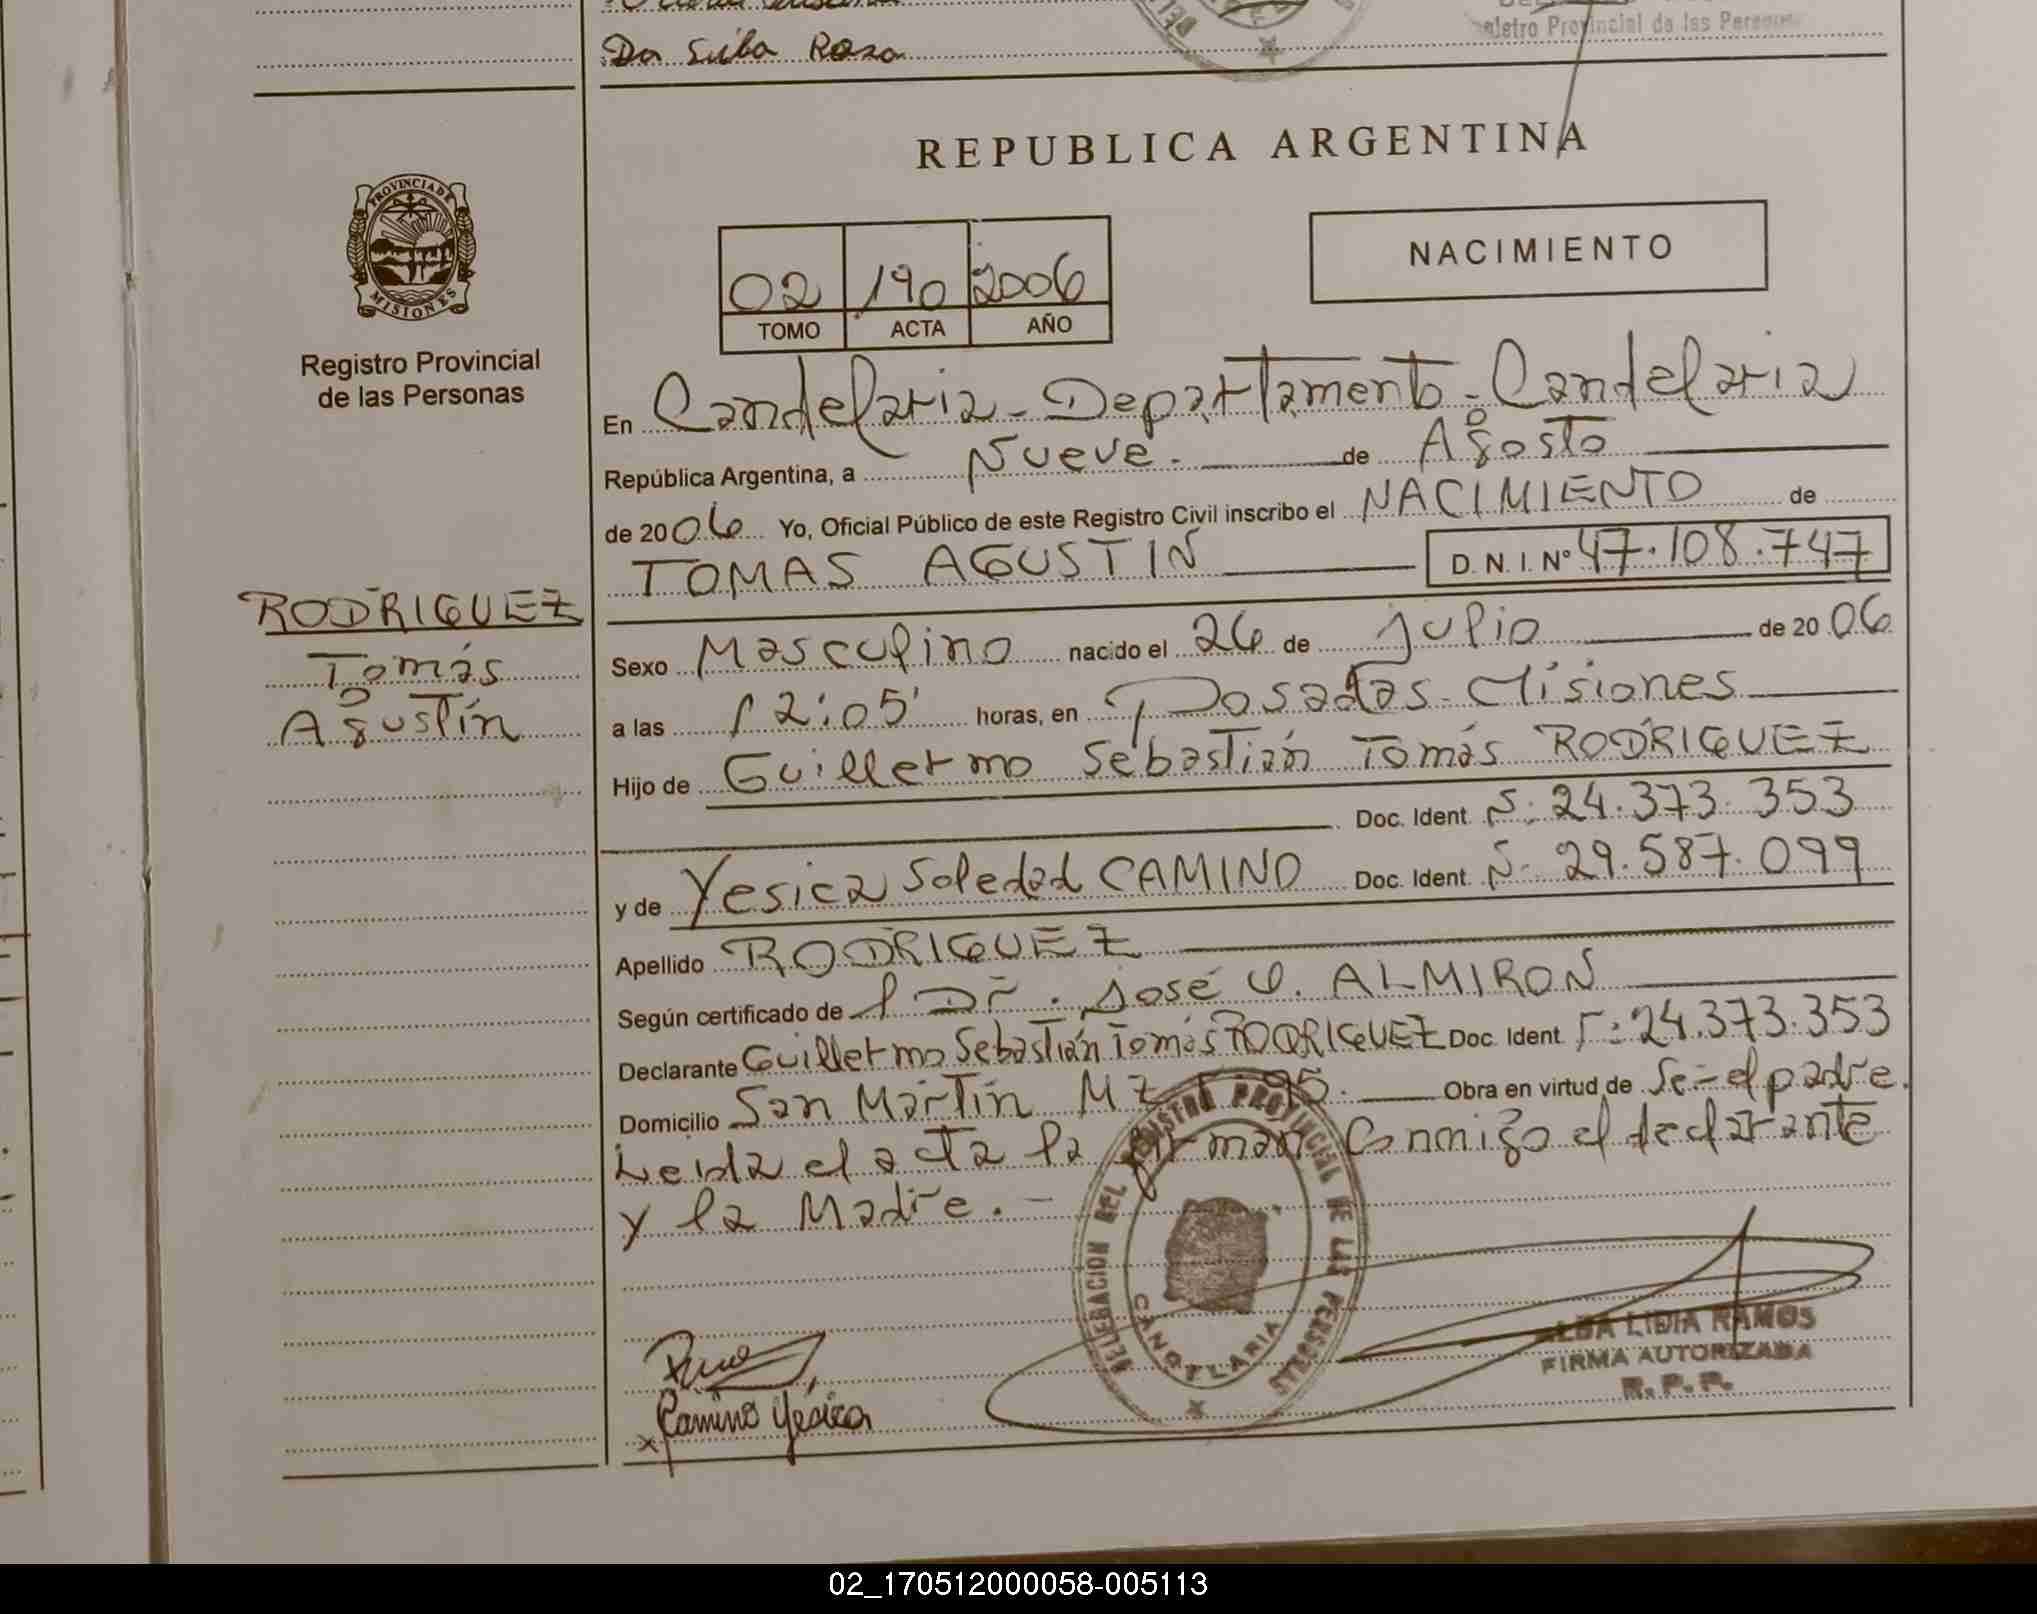 Da Silba Rosa
Registro Provincial de las Personas
REPUBLICA ARGENTINA
PROVINCIA DE
MISIONES
Registro Provincial
de las Personas
02 190 2006
TOMO ACTA AÑO
NACIMIENTO
En Candelaria - Departamento - Candelaria
República Argentina, a Nueve. de Agosto
de 2006 Yo, Oficial Público de este Registro Civil inscribo el NACIMIENTO de
TOMAS AGUSTIN D. N. I. Nº 47.108.747
RODRIGUEZ
Tomás
Agustín
Sexo Masculino nacido el 26 de Julio de 2006
a las 12:05' horas, en Posadas - Misiones
Hijo de Guillermo Sebastián Tomás RODRIGUEZ
Doc. Ident. Nº: 24.373.353
y de Yesica Soledad CAMINO Doc. Ident. Nº- 29.587.099
Apellido RODRIGUEZ
Según certificado de Dr. José ALMIRON
Declarante Guillermo Sebastián Tomás RODRIGUEZ Doc. Ident. 24.373.353
Domicilio San Martín Mz 95. Obra en virtud de Ser el padre.
Leida el acta la firman Conmigo el declarante
y la Madre. -
DELEGACION DEL REGISTRO PROVINCIAL DE LAS PERSONAS
CANDELARIA
ALBA LIDIA RAMOS
FIRMA AUTORIZADA
R. P. P.
x Camino Yesica
02_170512000058-005113